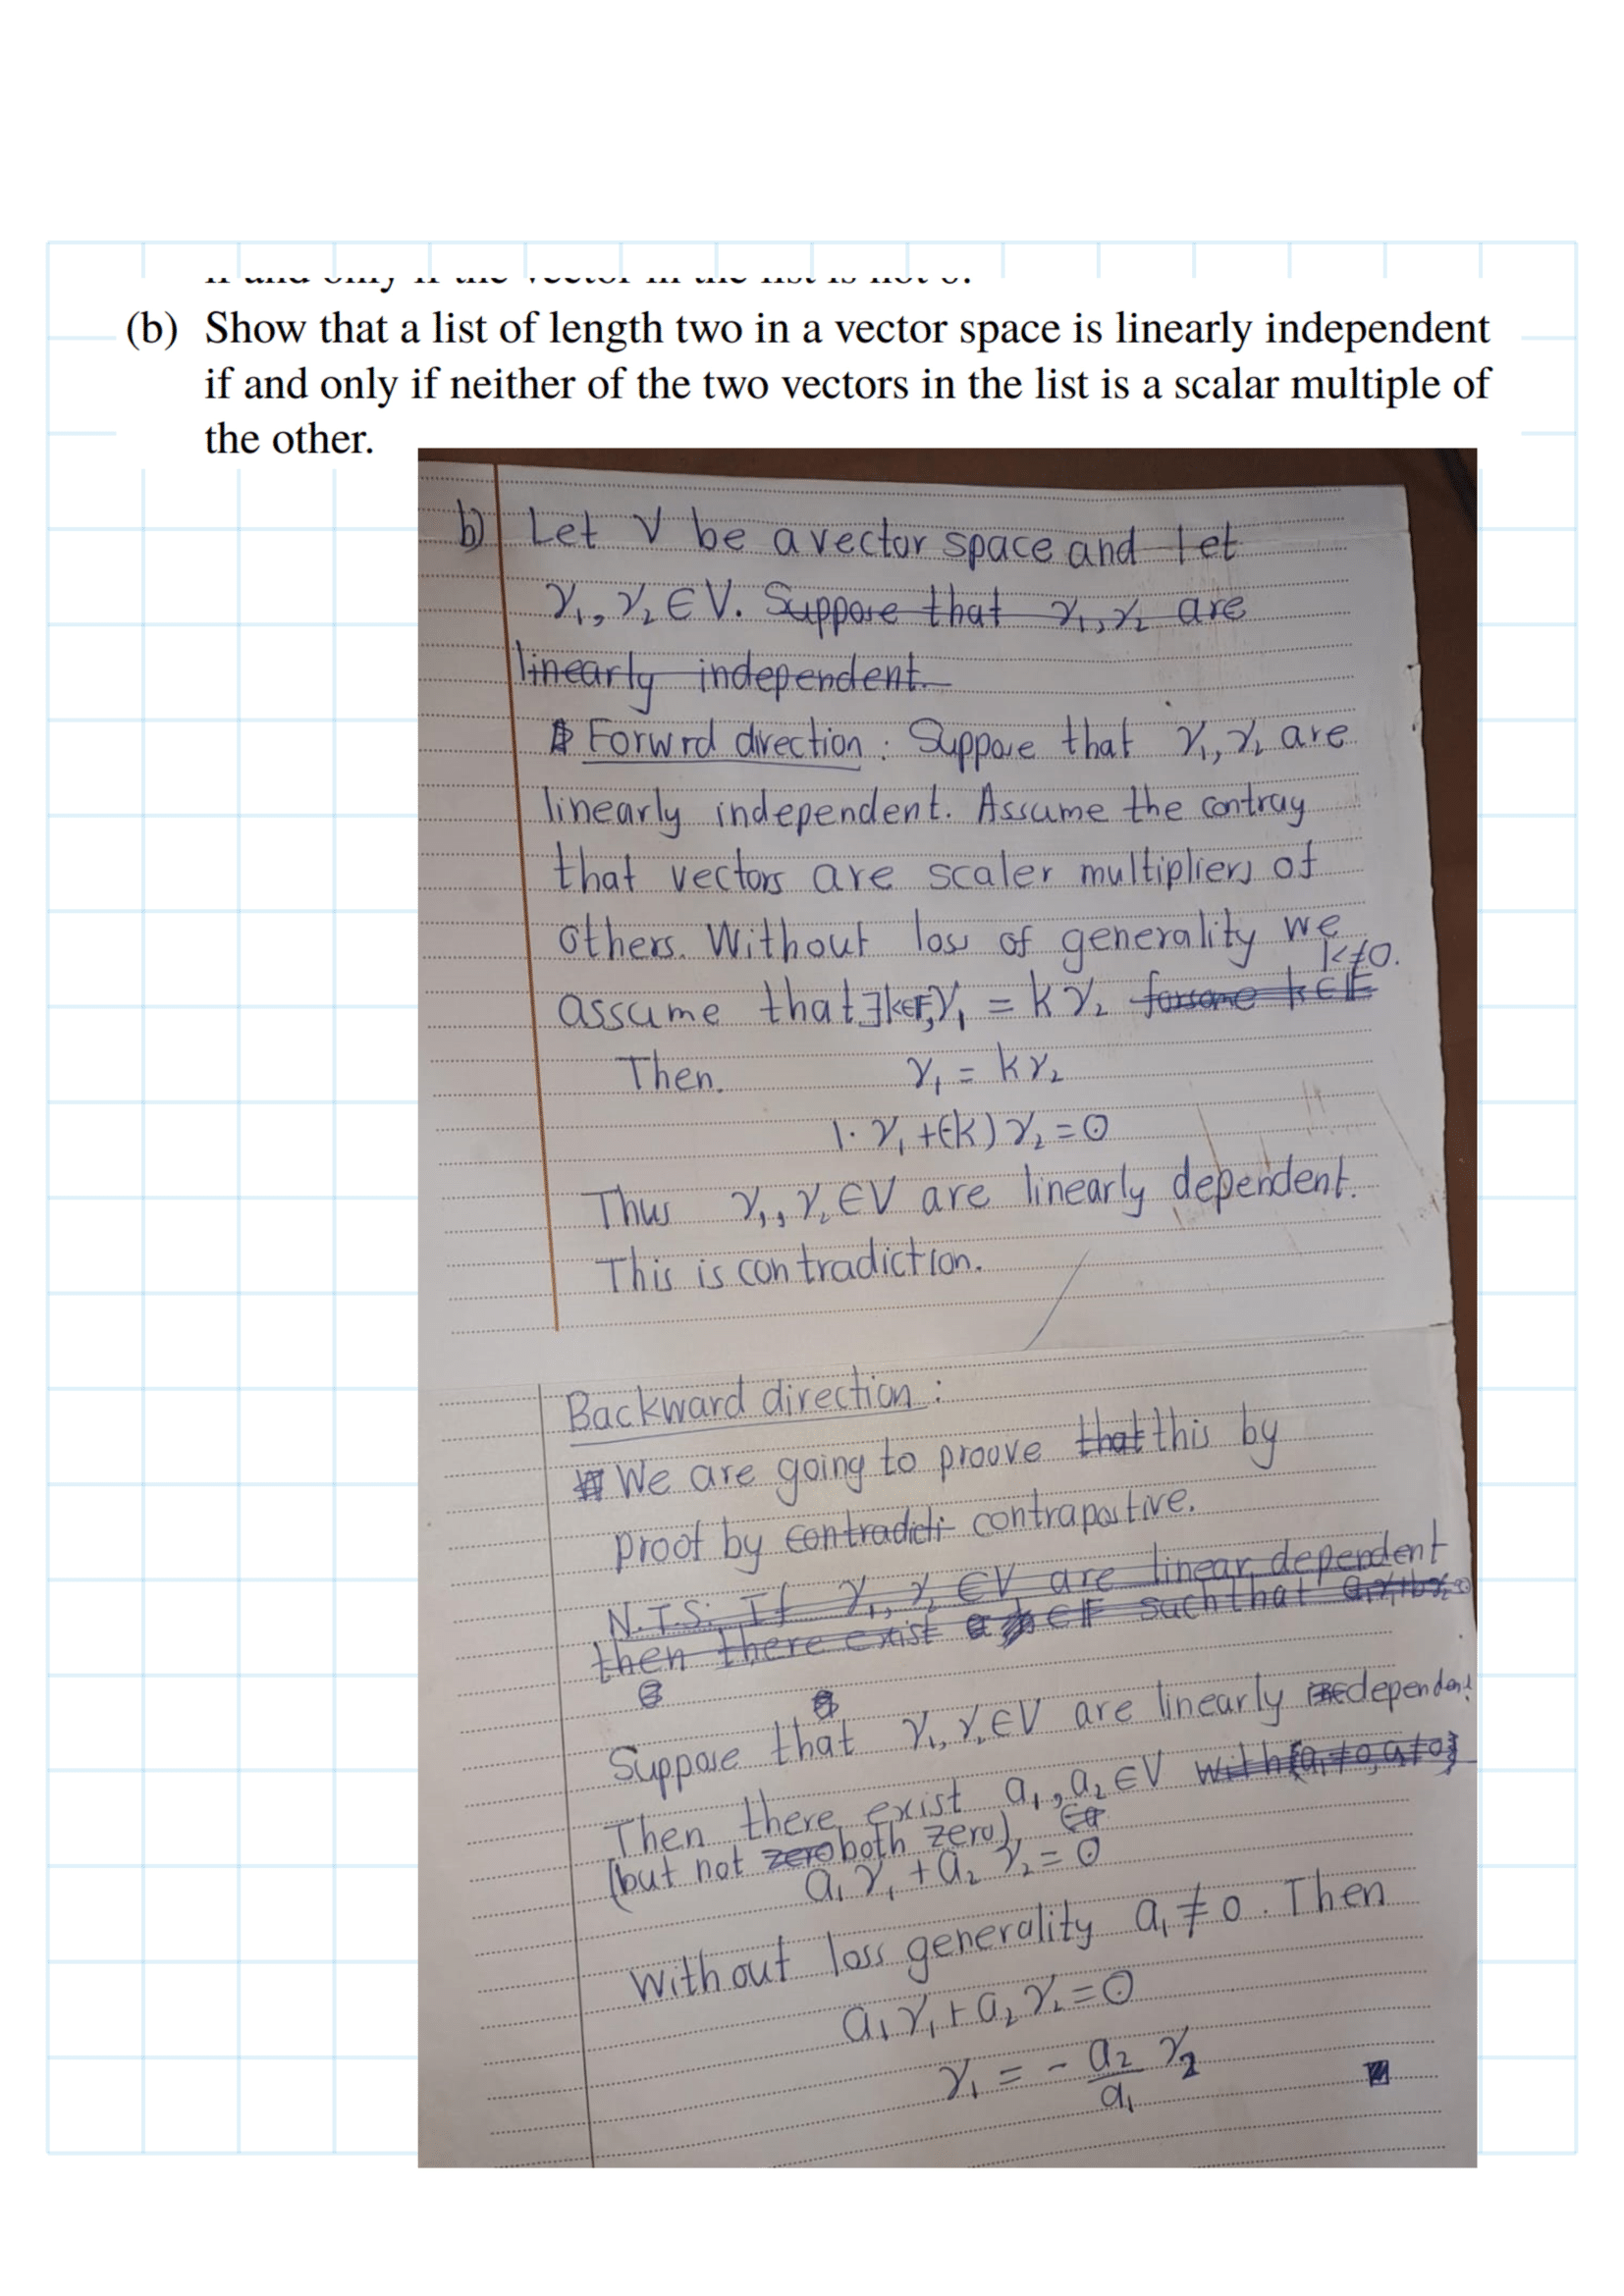 (b) Show that a list of length two in a vector space is linearly independent
if and only if neither of the two vectors in the list is a scalar multiple of
the other.
b) Let V be a vector space and let
γ₁, γ₂ ∈ V. Suppose that γ₁, γ₂ are
linearly independent.
Forwrd direction : Suppose that γ₁, γ₂ are
linearly independent. Assume the contray
that vectors are scaler multipliers of
others. Without loss of generality we
k≠0.
assume that ∃k∈F, γ₁ = k γ₂ for some k ∈ F
Then γ₁ = k γ₂
1· γ₁ + (-k) γ₂ = 0
Thus γ₁, γ₂ ∈ V are linearly dependent.
This is contradiction.
Backward direction :
We are going to proove that this by
proof by contradicti contrapositive.
N.T.S. If γ₁, γ₂ ∈ V are linear dependent
then there exist ∈ F such that
Suppose that γ₁, γ₂ ∈ V are linearly dependent
Then there exist a₁, a₂ ∈ V with {a₁≠0, a≠0}
(but not zero both zero),
a₁ γ₁ + a₂ γ₂ = 0
Without loss generality a₁ ≠ 0. Then
a₁ γ₁ + a₂ γ₂ = 0
γ₁ = - a₂/a₁ γ₂